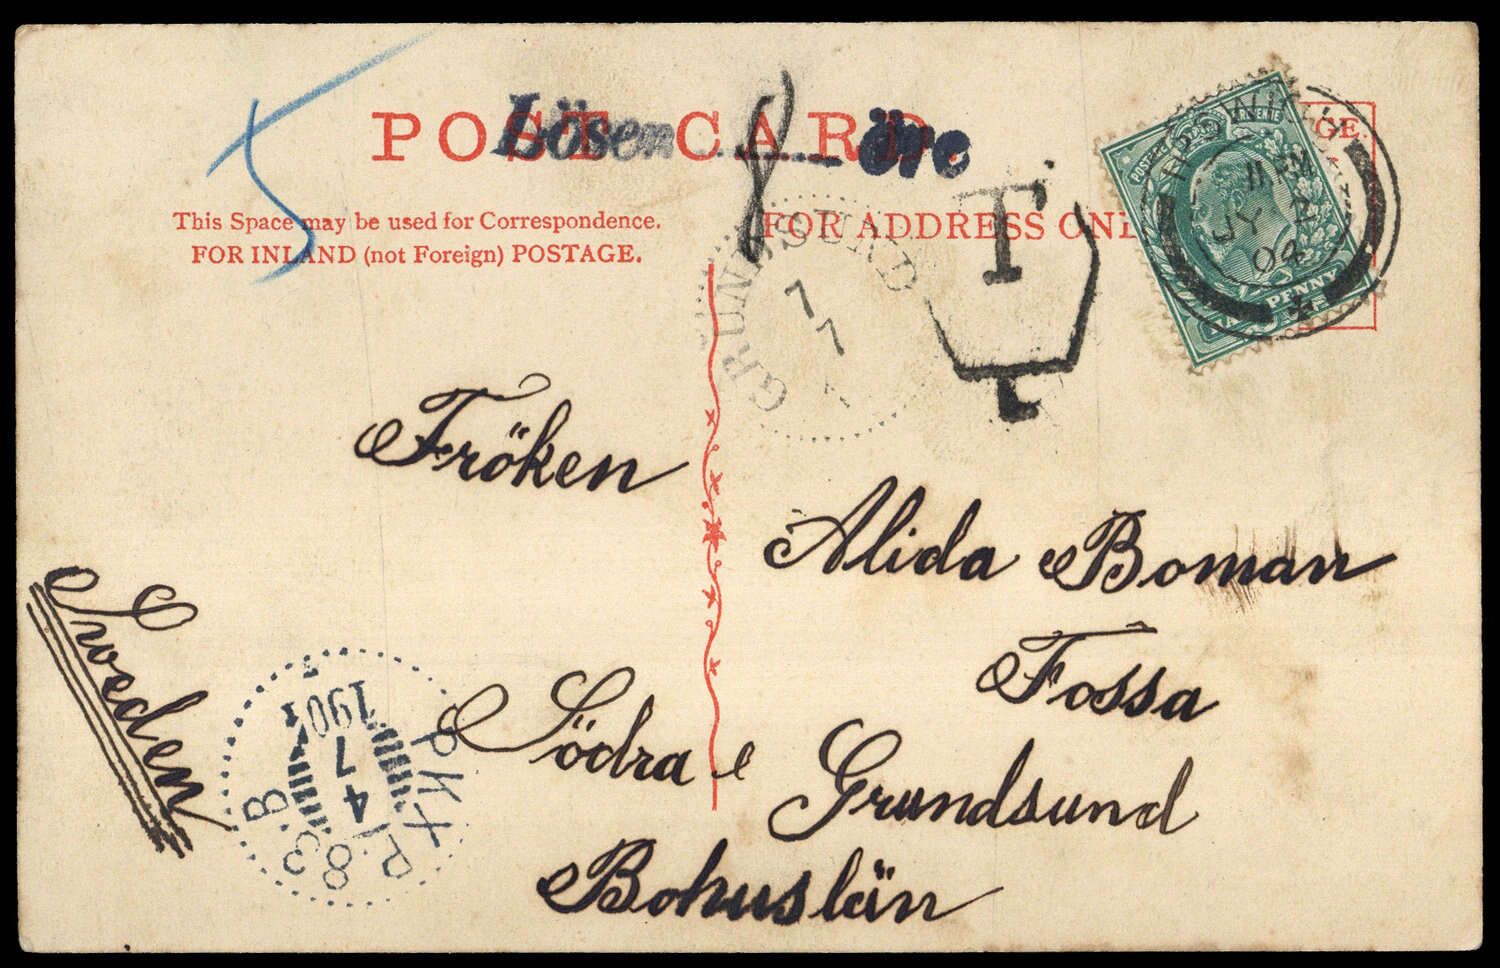 POST CARD
Lösen 8 öre
5
This Space may be used for Correspondence.
FOR INLAND (not Foreign) POSTAGE.
FOR ADDRESS ONL
T
GRUNDSUND
7
7
POSTAGE
PENNY
11
JY
04
GE.
Fröken
Alida Boman
Fossa
Södra Grundsund
Bohuslän
Sweden
PKXP. 83. B
4
7
1904